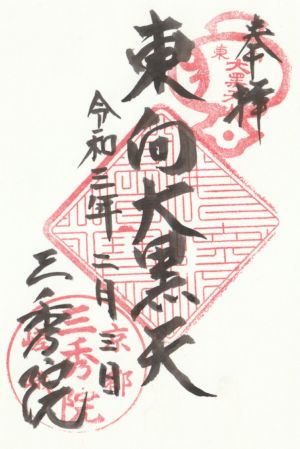 奉拝
東向大黒天
令和三年二月三日
三秀院
東
大黒天
京都
三秀院